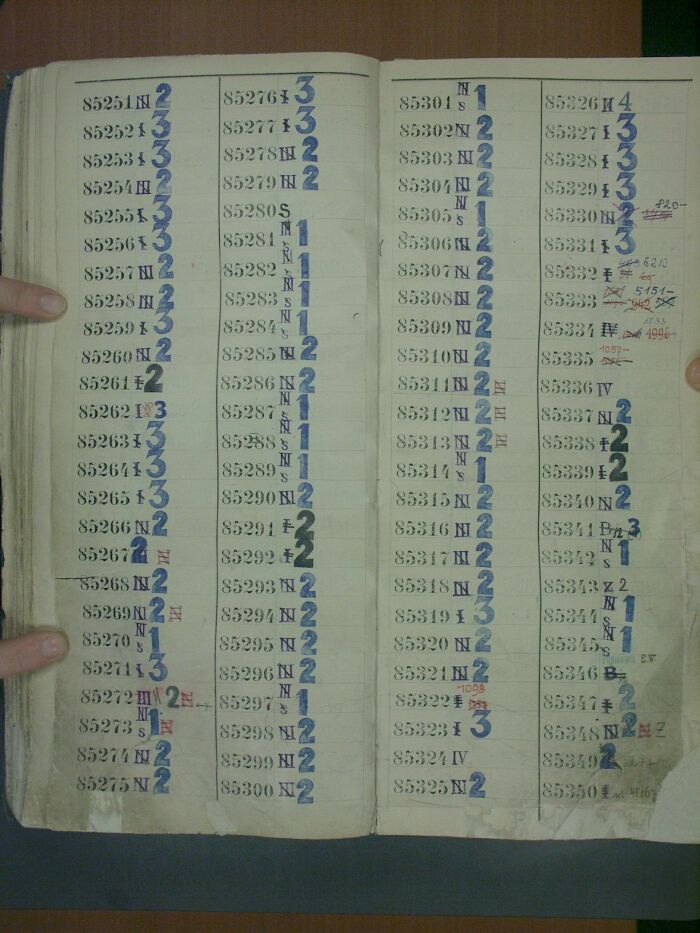 85251 N 2
85252 I 3
85253 I 3
85254 N 2
85255 I 3
85256 I 3
85257 N 2
85258 N 2
85259 I 3
85260 N 2
85261 I 2
85262 I 3
85263 I 3
85264 I 3
85265 I 3
85266 N 2
85267 2 III
85268 N 2
85269 N 2 III
85270 N s 1
85271 I 3
85272 III 2 III
85273 N s 1 III
85274 N 2
85275 N 2
85276 I 3
85277 I 3
85278 N 2
85279 N 2
85280 S
85281 N s 1
85282 N s 1
85283 N s 1
85284 N s 1
85285 N 2
85286 N 2
85287 N s 1
85288 N s 1
85289 N s 1
85290 N 2
85291 I 2
85292 I 2
85293 N 2
85294 N 2
85295 N 2
85296 N 2
85297 N s 1
85298 N 2
85299 N 2
85300 N 2
85301 N s 1
85302 N 2
85303 N 2
85304 N 2
85305 N s 1
85306 N 2
85307 N 2
85308 N 2
85309 N 2
85310 N 2
85311 N 2 III
85312 N 2 III
85313 N 2 III
85314 N s 1
85315 N 2
85316 N 2
85317 N 2
85318 N 2
85319 I 3
85320 N 2
85321 N 2
85322 I 1098
85323 I 3
85324 IV
85325 N 2
85326 N 4
85327 I 3
85328 I 3
85329 I 3
85330 N 2 820-
85331 I 3
85332 I 6210
85333 5151- 942
85334 IV 1033 1996
85335 1050-
85336 IV
85337 N 2
85338 I 2
85339 I 2
85340 N 2
85341 B 3
85342 N s 1
85343 Z 2
85344 N s 1
85345 N s 1
85346 B
85347 I 2
85348 N 2 N Z
85349 2
85350 I